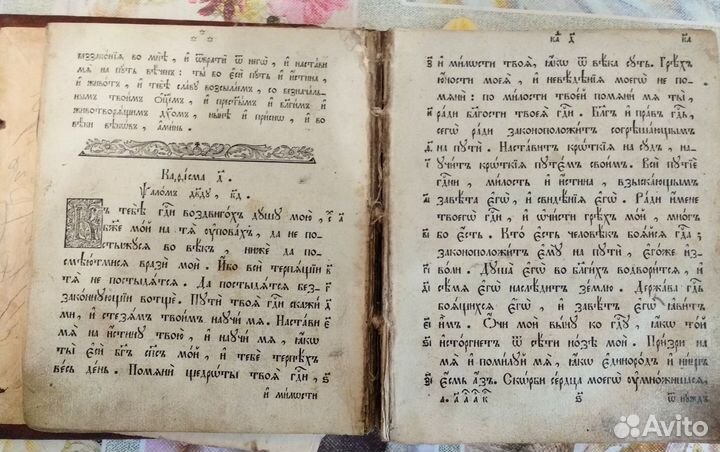 беззаконїѧ во мнѣ , и҆ ѿврати ѿ негѡ̀ , и҆ настави
мѧ на путь вѣченъ : ты бо є҆си путь и҆ и҆стина ,
и҆ животъ , и҆ тебѣ славу возсылаем , со безначаль
нымъ твоимъ ѻ҆ц҃емъ , и҆ прест҃ымъ и҆ бл҃гимъ и҆
животворѧщимъ дх҃омъ , нынѣ и҆ присно , и҆ во
вѣки вѣкѡвъ , а҆минь .
Каѳисма д҃ .
Ѱаломъ дв҃ду , кд҃ .
Къ тебѣ гд҃и воздвигохъ душу мою ,
бж҃е мой на тѧ ᲂу҆повахъ , да не по
стыжусѧ во вѣкъ , ниже да по
смѣютмисѧ врази мой . И҆бо вси терпѧщїи
тѧ не постыдѧтсѧ . Да постыдѧтсѧ без
законнующїи вотще . Пути твоѧ гд҃и скажи
ми , и҆ стезѧмъ твоимъ научи мѧ . Настави
мѧ на и҆стину твою , и҆ научи мѧ , ꙗ҆кѡ
ты є҆си бг҃ъ сп҃съ мой , и҆ тебе терпѣхъ
весь день . Помѧни щедрѡты твоѧ гд҃и ,
и҆ милости
ка҃
и҆ милѡсти твоѧ , ꙗ҆кѡ ѿ вѣка суть . Грѣхъ
ю҆ности моеѧ , и҆ невѣдѣнїѧ моегѡ не по
мѧни : по милости твоей помѧни мѧ ты ,
ради благости твоеѧ гд҃и . Бл҃гъ и҆ правъ гд҃ь ,
сегѡ ради законоположитъ согрѣшающымъ
на пути . Наставитъ крѡткїѧ на судъ , на
учитъ крѡткїѧ путємъ своимъ . Вси путїе
гд҃ни , милость и҆ и҆стина , взыскающымъ
завѣта є҆гѡ , и҆ свидѣнїѧ є҆гѡ . Ради имене
твоегѡ гд҃и , и҆ ѡ҆чисти грѣхъ мой , мнѡгъ
бо є҆сть . Кто є҆сть человѣкъ боѧйсѧ гд҃а ;
законоположитъ є҆му на пути , є҆гоже и҆з
воли . Душа є҆гѡ во благихъ водворитсѧ , и҆
сѣмѧ є҆гѡ наслѣдитъ землю . Держава гд҃ь
боѧщихсѧ є҆гѡ , и҆ завѣтъ є҆гѡ ꙗ҆витъ
и҆мъ . Ѻ҆чи мои выну ко гд҃у , ꙗ҆кѡ той
и҆сторгнетъ ѿ сѣти нозѣ мои . Призри на
мѧ и҆ помилуй мѧ , ꙗ҆кѡ є҆динородъ и҆ нищъ
є҆смь а҆зъ . Скѡрби сердца моегѡ ᲂу҆множишасѧ ,
ѿ нуждъ
Avito